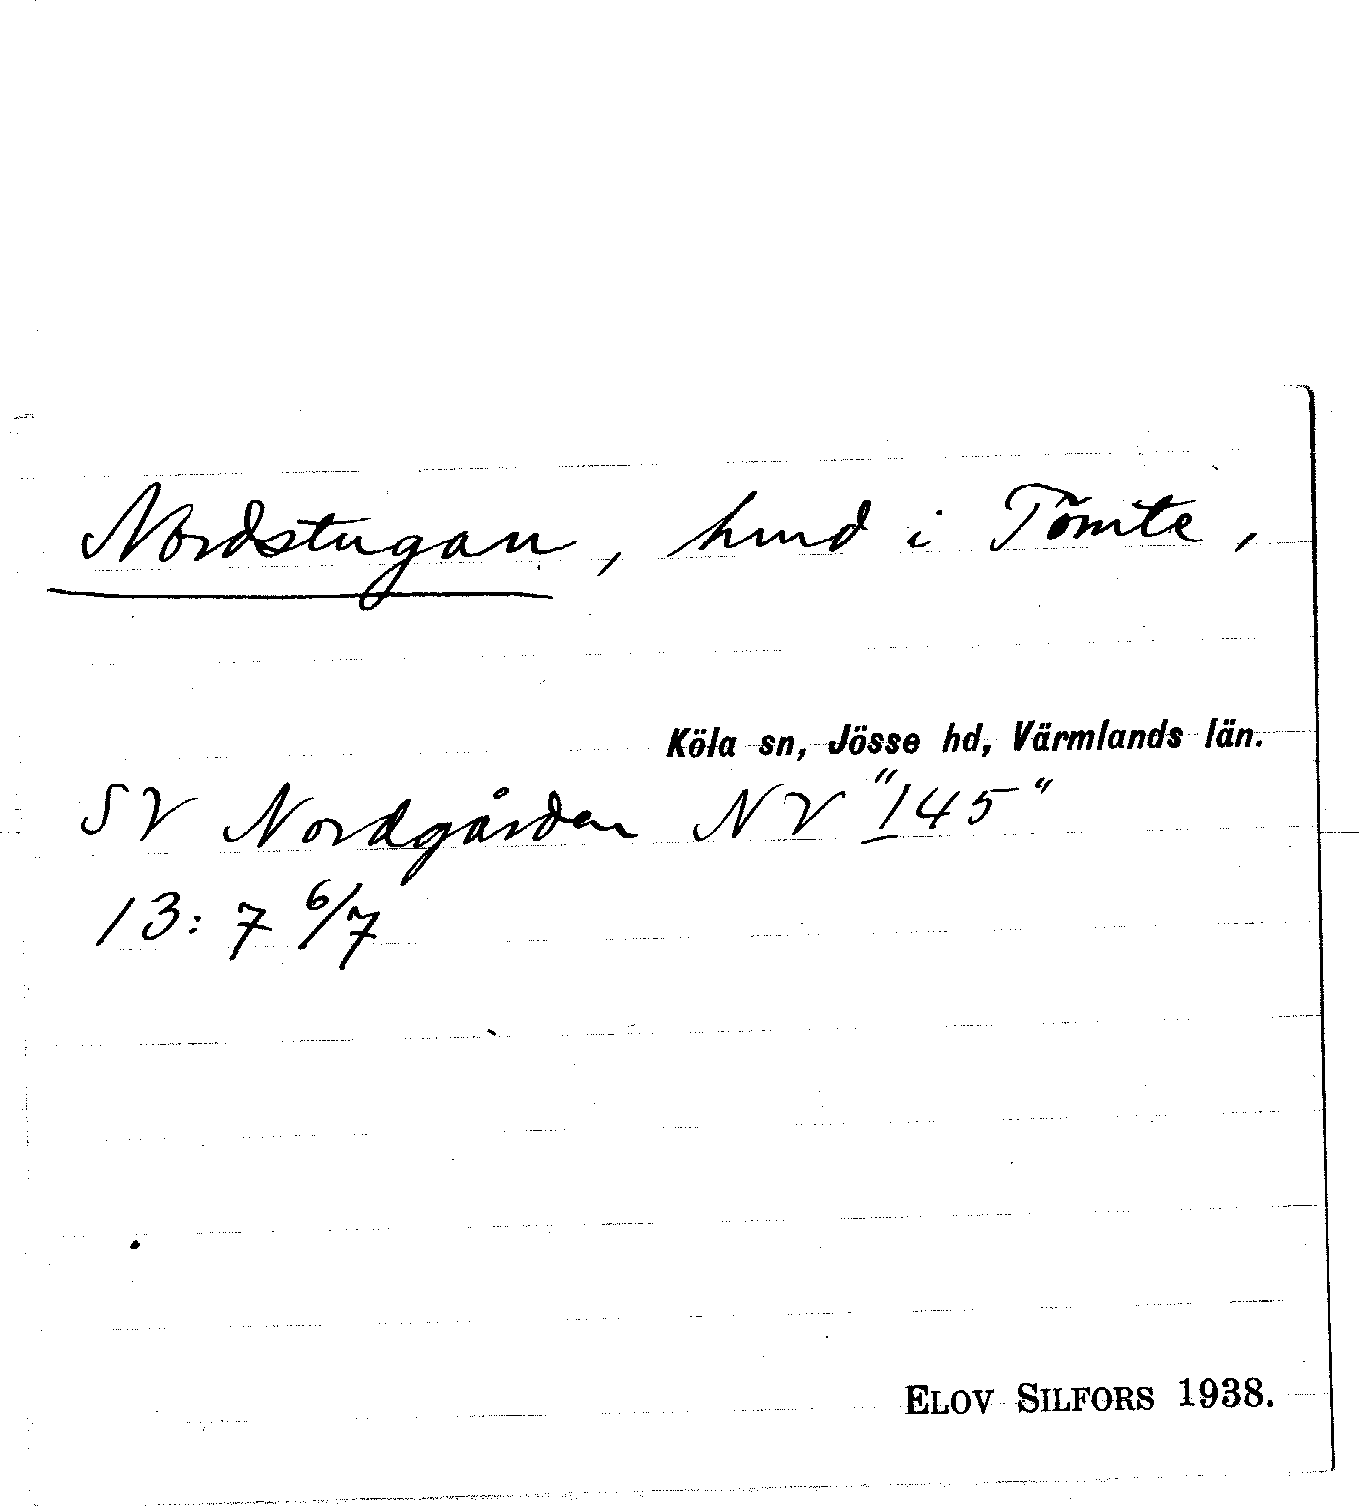 Nordstugan, hmd i Tömte,
Köla sn, Jösse hd, Värmlands län.
SV Nordgården NV "145"
13:7 6/7
ELOV SILFORS 1938.